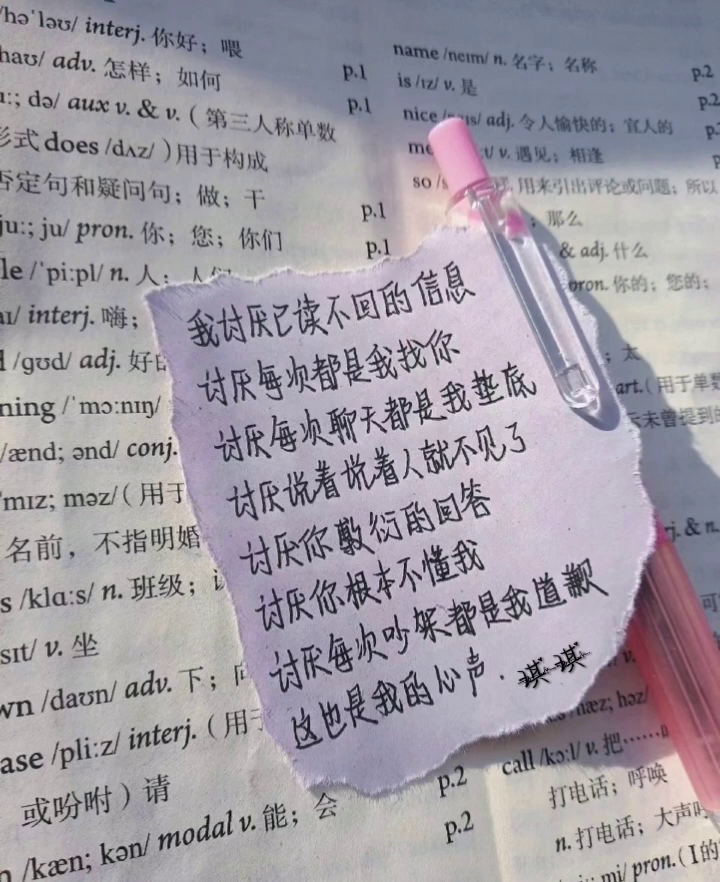 /həˈləʊ/ interj. 你好；喂
adv. 怎样；如何 p.1
də/ aux v. & v.（第三人称单数 p.1
形式 does /dʌz/）用于构成
否定句和疑问句；做；干
juː; ju/ pron. 你；您；你们 p.1
/ˈpiːpl/ n. 人； p.1
interj. 嗨；
/ɡʊd/ adj.
/ˈmɔːnɪŋ/
/ænd; ənd/ conj.
mɪz; məz/（用于
名前，不指明婚
/klɑːs/ n. 班级；
sɪt/ v. 坐
/daʊn/ adv. 下；
/pliːz/ interj.（用于
或吩咐）请 p.2
/kæn; kən/ modal v. 能；会 p.2
name /neɪm/ n. 名字；名称 p.2
is /ɪz/ v. 是 p.2
nice adj. 令人愉快的；宜人的
v. 遇见；相逢
so 用来引出评论或问题；所以
那么
& adj. 什么
pron. 你的；您的；
太
art.（用于单数
未曾提到的
我讨厌已读不回的信息
讨厌每次都是我找你
讨厌每次聊天都是我垫底
讨厌说着说着人就不见了
讨厌你敷衍的回答
讨厌你根本不懂我
讨厌每次吵架都是我道歉
这也是我的心声. 琪琪
/hæz; həz/
call /kɔːl/ v. 把……
打电话；呼唤
n. 打电话；大声
mi/ pron.（I的